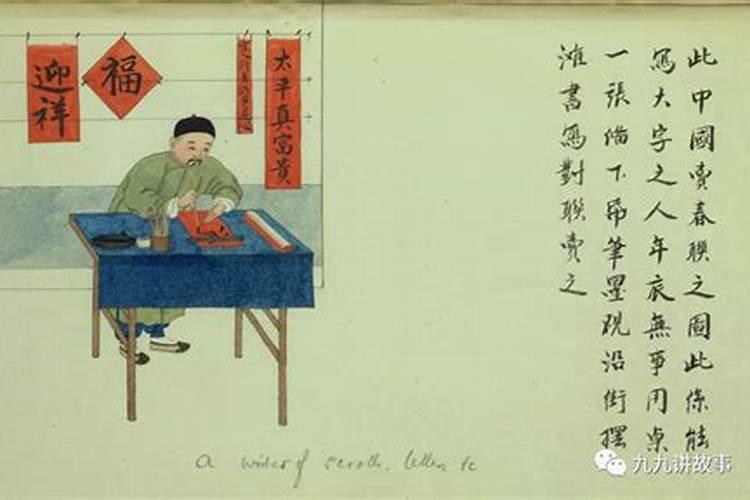 此中國賣春聯之圖此係能
寫大字之人年底無事用桌
一張備下帋筆墨硯沿街擺
灘書寫對聯賣之
太平真富貴
福
迎祥
A writer of scrolls, letters &c
九九讲故事